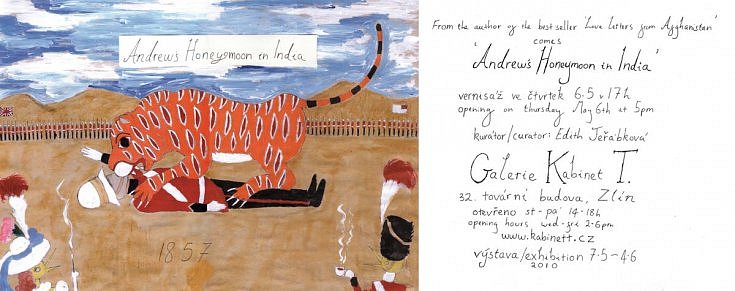 Andrew's Honeymoon in India
1857
From the author of the best seller 'Love Letters from Afghanistan'
comes
'Andrew's Honeymoon in India'
vernisáž ve čtvrtek 6.5 v 17h
opening on thursday May 6th at 5pm
kurátor/curator: Edith Jeřábková
Galerie Kabinet T.
32. tovární budova, Zlín
otevřeno st-pá 14-18h
opening hours wed-fri 2-6pm
www.kabinett.cz
výstava/exhibition 7.5-4.6
2010